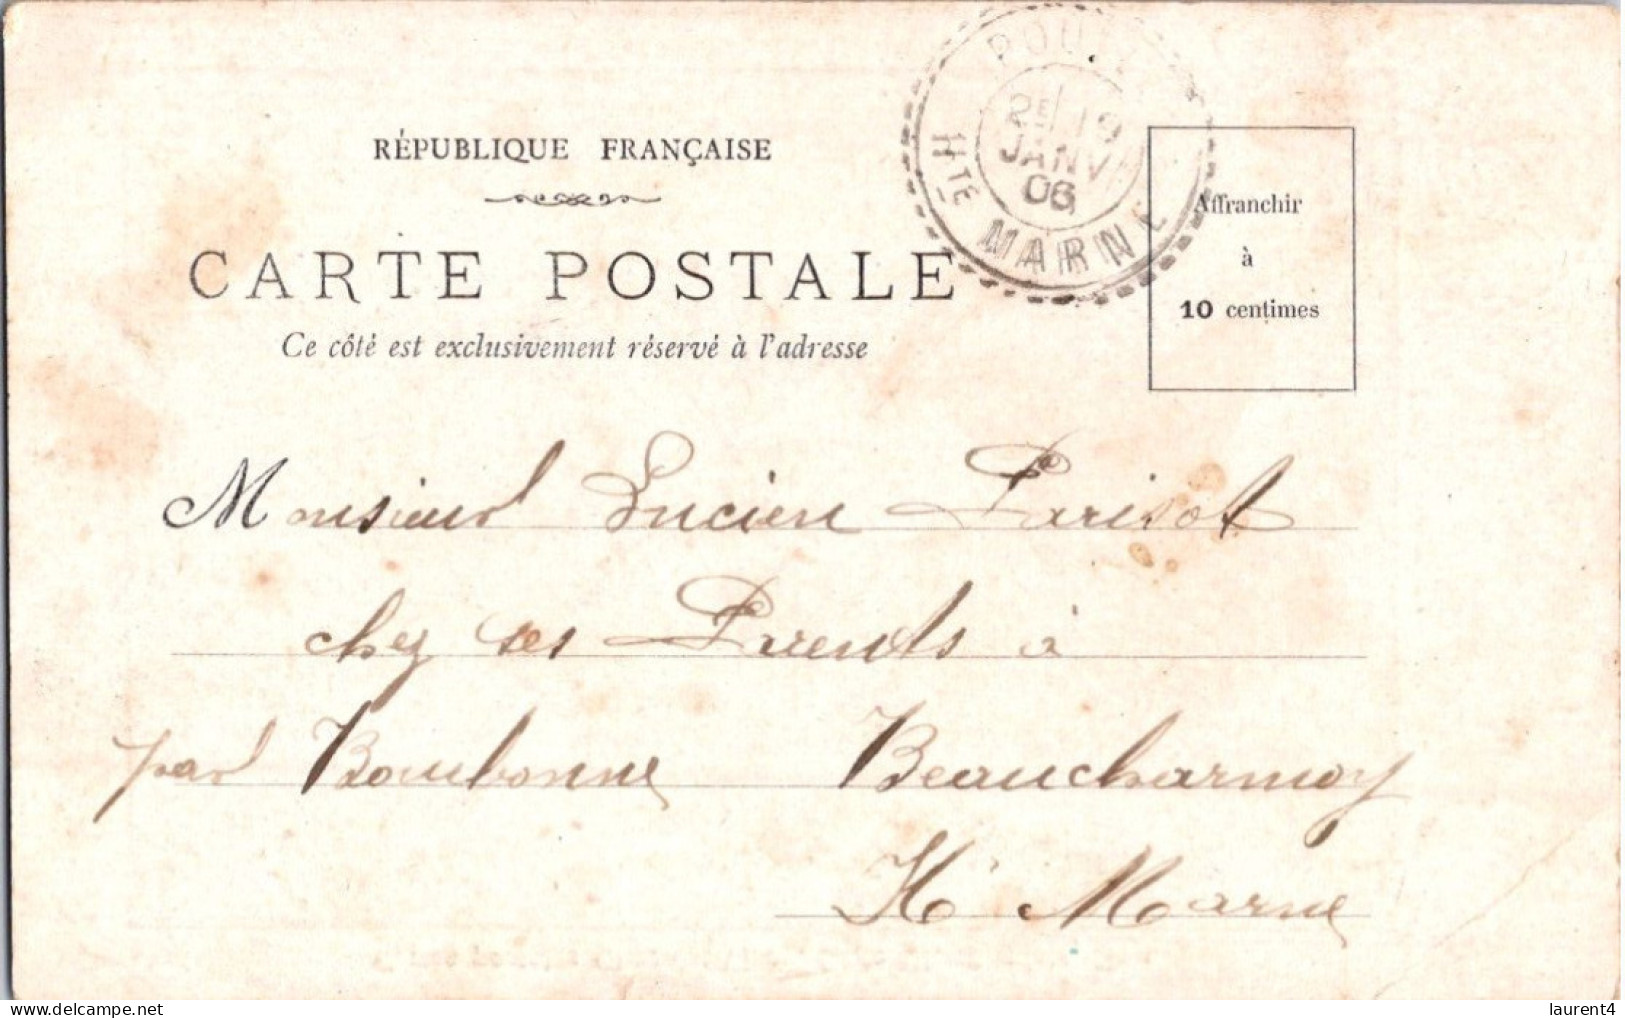 RÉPUBLIQUE FRANÇAISE
CARTE POSTALE
Ce côté est exclusivement réservé à l'adresse
19
JANV
06
HTE MARNE
Affranchir
à
10 centimes
Monsieur Lucien Parisot
chez ses Parents à
par Bourbonne Beaucharmoy
Hte Marne
laurent4